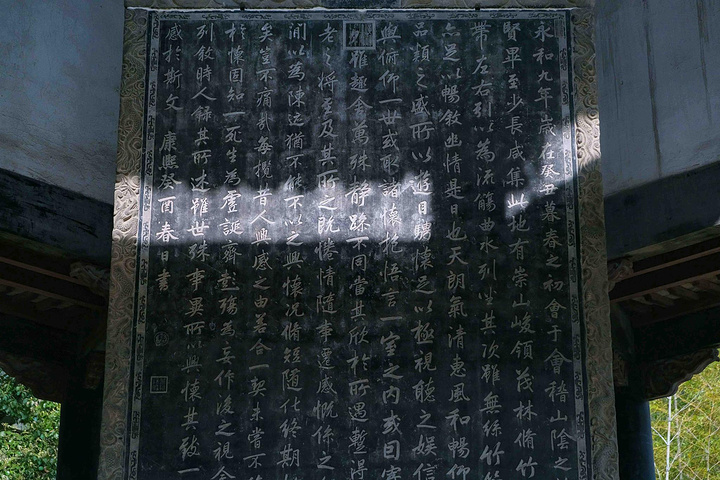 永和九年歲在癸丑暮春之初會于會稽山陰之
賢畢至少長咸集此地有崇山峻領茂林脩竹
帶左右引以為流觴曲水列坐其次雖無絲竹
亦足以暢敘幽情是日也天朗氣清惠風和暢仰
品類之盛所以遊目騁懷足以極視聽之娛信
與俯仰一世或取諸懷抱悟言一室之內或因寄
雖趣舍萬殊靜躁不同當其欣於所遇蹔得
老之將至及其所之既惓情隨事遷感慨係之
間以為陳迹猶不能不以之興懷況脩短隨化終期
矣豈不痛哉每攬昔人興感之由若合一契未嘗不
於懷固知一死生為虛誕齊彭殤為妄作後之視今
列敘時人錄其所述雖世殊事異所以興懷其致一
感於斯文 康熙癸酉春日書